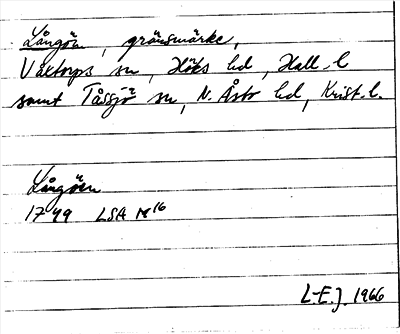 Långön, gränsmärke,
Våxtorps sn, Höks hd, Hall. l
samt Tåssjö sn, N. Åsbo hd, Krist. l.
Långöen
1749 LSA N 16
L-E.J. 1966